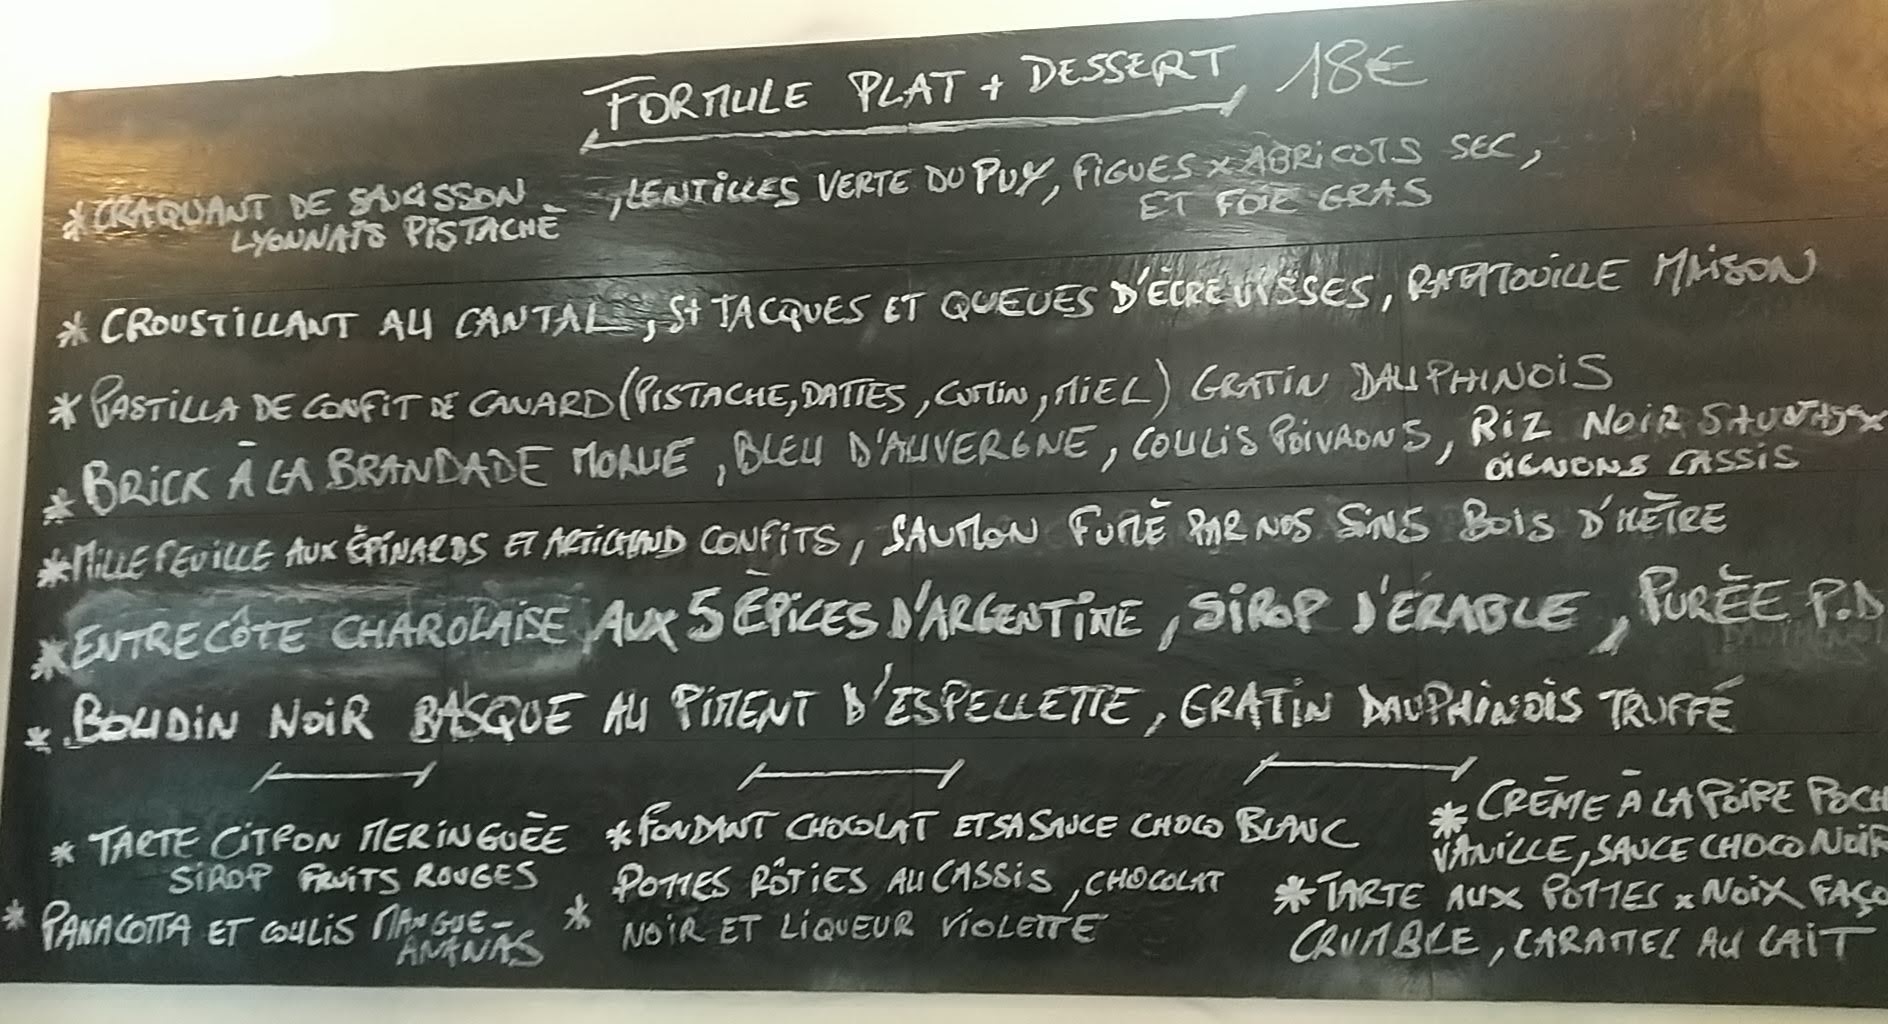 FORMULE PLAT + DESSERT 18€
*CRAQUANT DE SAUCISSON , LENTILLES VERTE DU PUY, FIGUES x ABRICOTS SEC,
LYONNAIS PISTACHÉ ET FOIE GRAS
* CROUSTILLANT AU CANTAL, St JACQUES ET QUEUES D'ÉCREVISSES, RATATOUILLE MAISON
* PASTILLA DE CONFIT DE CANARD (PISTACHE, DATTES, CUMIN, MIEL) GRATIN DAUPHINOIS
* BRICK À LA BRANDADE MORUE, BLEU D'AUVERGNE, COULIS POIVRONS, RIZ NOIR SAUVAGE x
OIGNONS CASSIS
* MILLE FEUILLE AUX ÉPINARDS ET ARTICHAUD CONFITS, SAUMON FUMÉ PAR NOS SINS BOIS D'HÊTRE
* ENTRECÔTE CHAROLAISE AUX 5 ÉPICES D'ARGENTINE, SIROP D'ÉRABLE, PURÉE P.D
* BOUDIN NOIR BASQUE AU PIMENT D'ESPELLETTE, GRATIN DAUPHINOIS TRUFFÉ
* TARTE CITRON MERINGUÉE
SIROP FRUITS ROUGES
* PANACOTTA ET COULIS MANGUE-
ANANAS
* FONDANT CHOCOLAT ET SA SAUCE CHOCO BLANC
* POMMES RÔTIES AU CASSIS, CHOCOLAT
NOIR ET LIQUEUR VIOLETTE
* CRÈME À LA POIRE POCH
VANILLE, SAUCE CHOCO NOIR
* TARTE AUX POMMES x NOIX FAÇO
CRUMBLE, CARAMEL AU LAIT